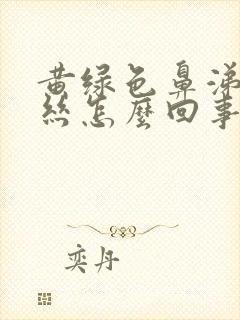 黄绿色鼻涕
丝怎麽回事
奕丹